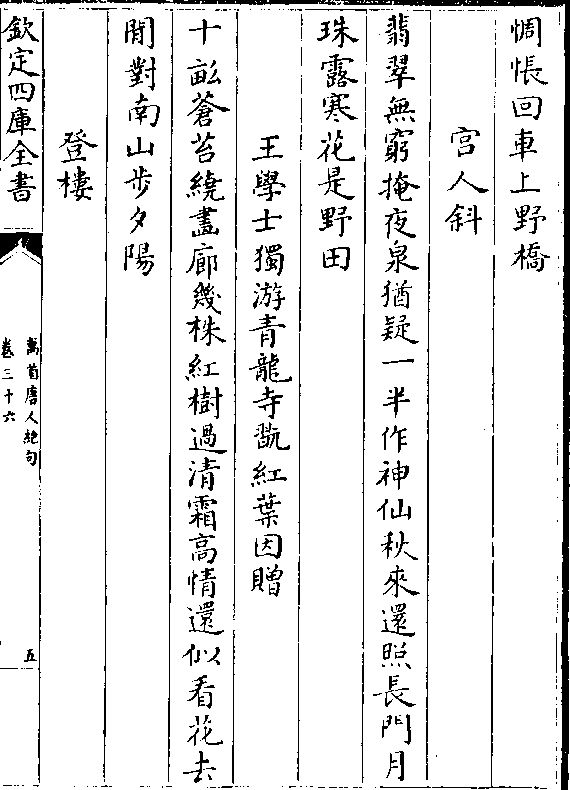 惆悵回車上野橋
宫人斜
翡翠無窮掩夜泉猶疑一半作神仙秋來還照長門月
珠露寒花是野田
王學士獨游青龍寺翫紅葉因贈
十畝蒼苔繞畫廊幾株紅樹過清霜高情還似看花去
閒對南山步夕陽
登樓
欽定四庫全書
萬首唐人絶句
卷三十六
五